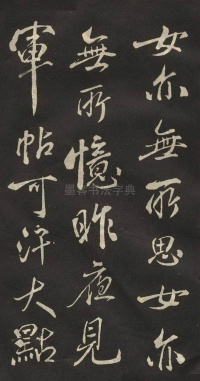 女亦無所思女亦
無所憶昨夜見
軍帖可汗大點
墨客书法字典